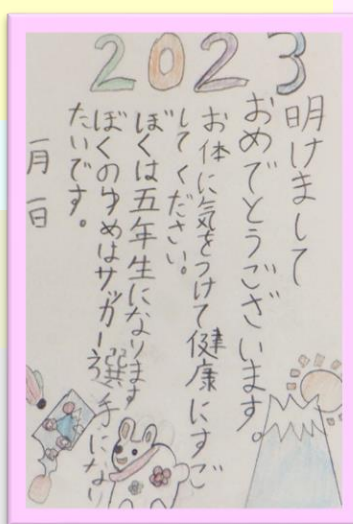 2023
明けまして
おめでとうございます。
お体に気をつけて健康にすご
してください。
ぼくは五年生になります
ぼくのゆめはサッカー選手になり
たいです。
一月一日